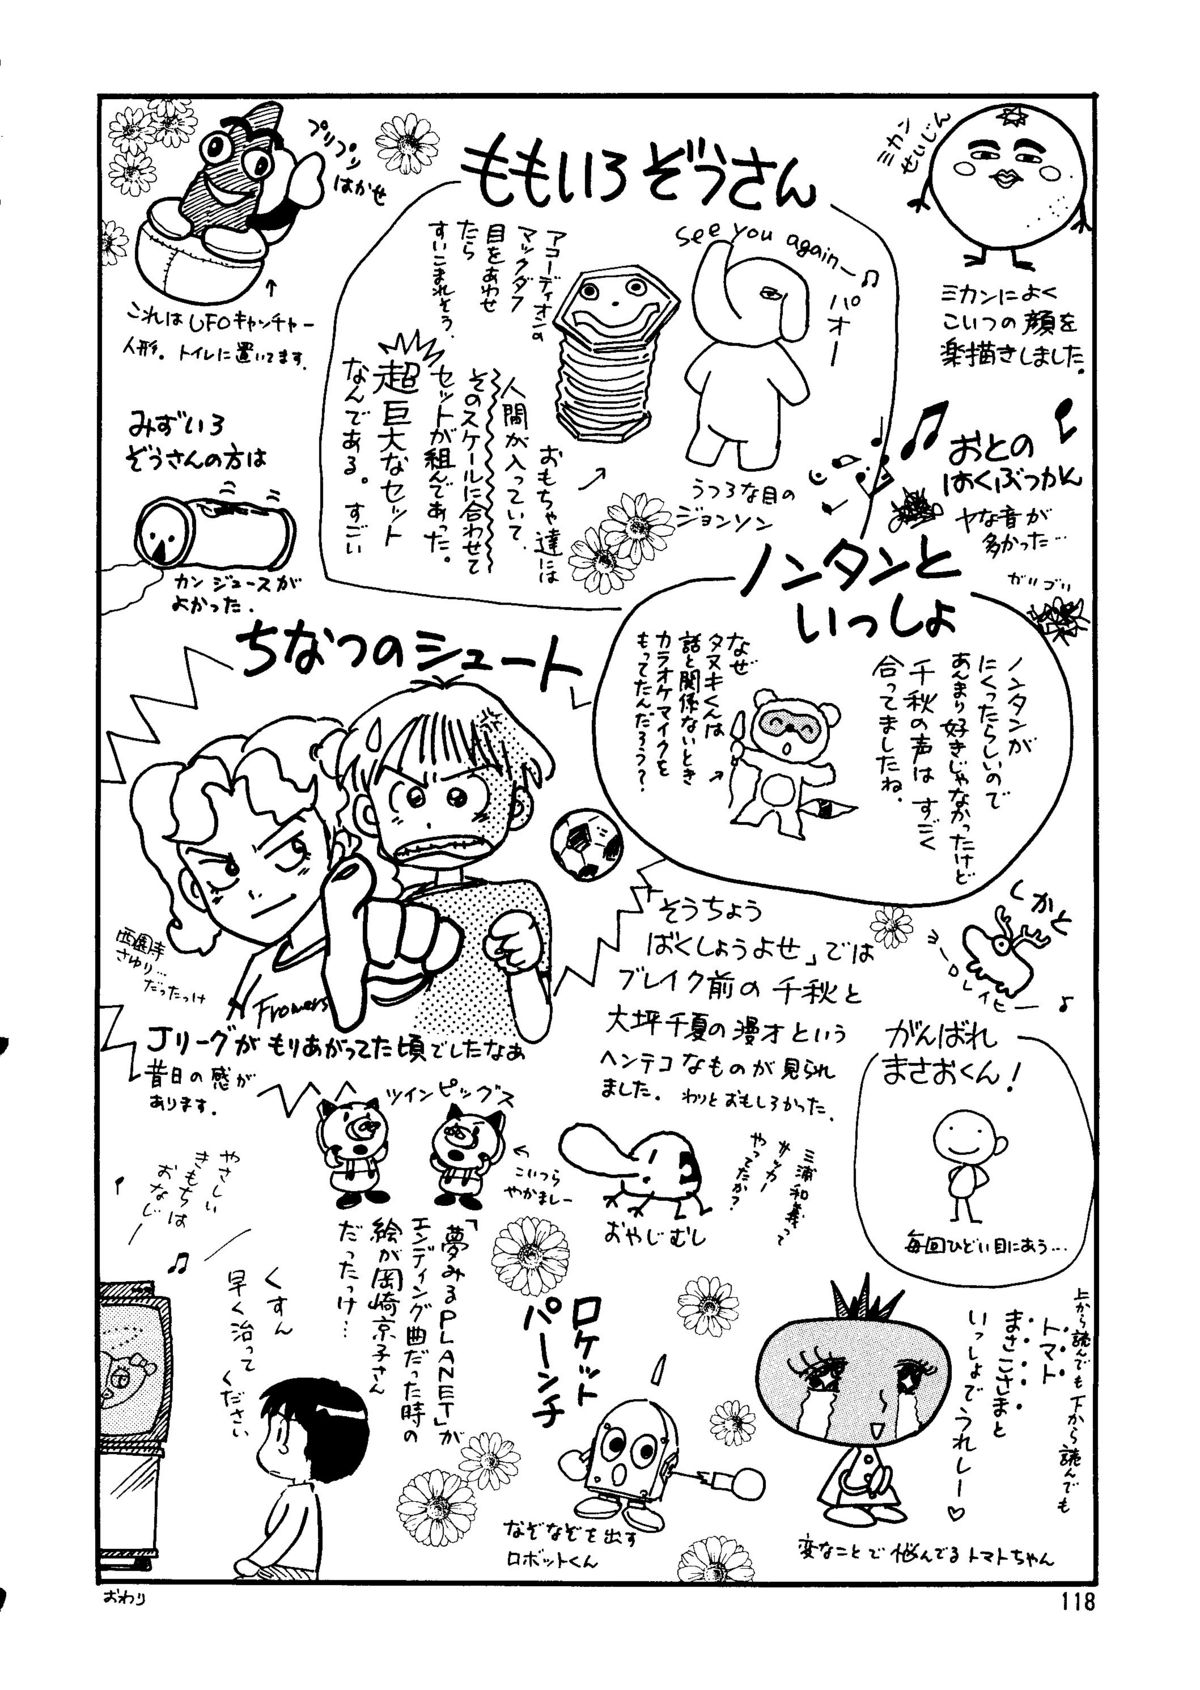 ももいろぞうさん
プリプリ
はかせ
これはUFOキャッチャー
人形。トイレに置いてます。
アコーディオンの
マックダフ
目をあわせ
たら
すいこまれそう。
see you again―♫
パオー
うつろな目の
ジョンソン
おもちゃ達には
人間が入っていて、
そのスケールに合わせて
セットが組んであった。
超巨大なセット
なんである。すごい
ミカン
せいじん
ミカンによく
こいつの顔を
楽描きしました。
みずいろ
ぞうさんの方は
カンジュースが
よかった.
おとの
はくぶつかん
ヤな音が
多かった…
ガリゴリ
ノンタンと
いっしょ
ノンタンが
にくったらしいので
あんまり好きじゃなかったけど
千秋の声は すごく
合ってましたね。
なぜ
タヌキくんは
話と関係ないとき
カラオケマイクを
もってたんだろう?
ちなつのシュート
西園寺
さゆり…
だったっけ
Frowers
Jリーグがもりあがってた頃でしたなぁ
昔日の感が
あります.
「そうちょう
ばくしょうよせ」では
ブレイク前の千秋と
大坪千夏の漫才という
ヘンテコなものが見られ
ました。わりとおもしろかった.
しかと
ヨ
ロ
レイヒー♪
がんばれ
まさおくん!
毎回ひどい目にあう…
ツインピッグス
こいつら
やかましー
「夢みるPLANET」が
エンディング曲だった時の
絵が岡崎京子さん
だったっけ…
三浦和義って
サッカー
やってたか?
おやじむし
やさしい
きもちは
おなじー
♫
くすん
早く治って
ください
ロケット
パーンチ
なぞなぞを出す
ロボットくん
上から読んでも下から読んでも
トマト
まさこさまと
いっしょでうれしー♡
変なことで悩んでるトマトちゃん
おわり
118